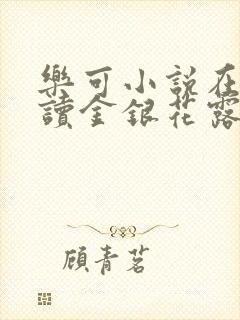 樂可小說在
讀金銀花露
顧青茗